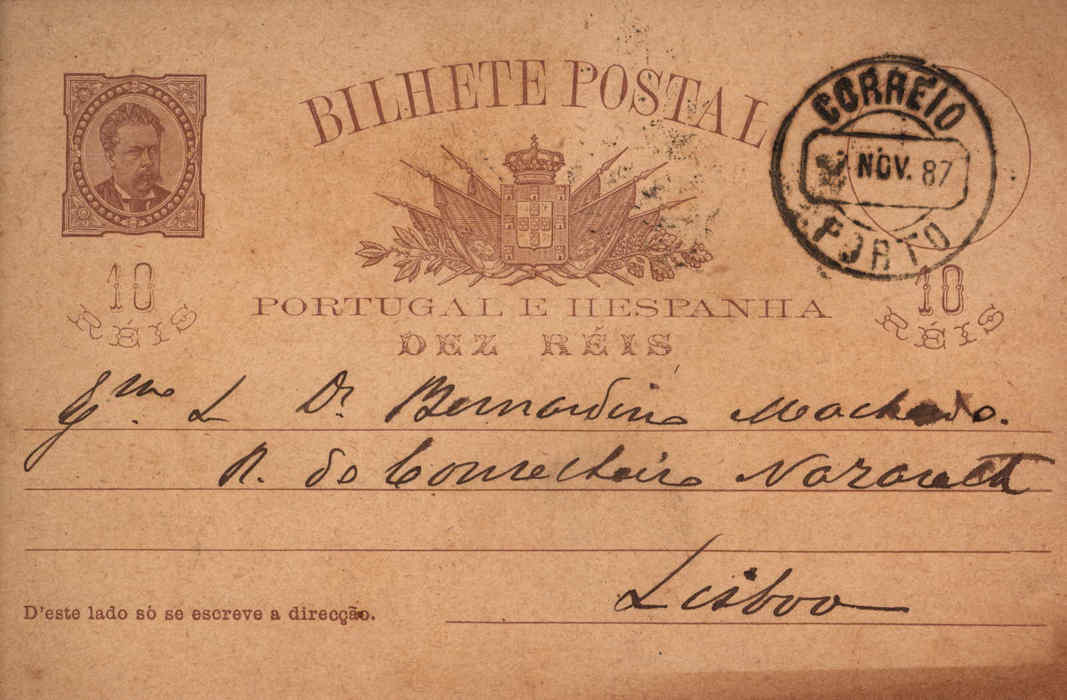 BILHETE POSTAL
CORREIO
NOV. 87
PORTO
10
RÉIS
10
RÉIS
PORTUGAL E HESPANHA
DEZ RÉIS
Dr. Bernardino Machado.
R. do Conselheiro Nazareth
Lisboa
D'este lado só se escreve a direcção.